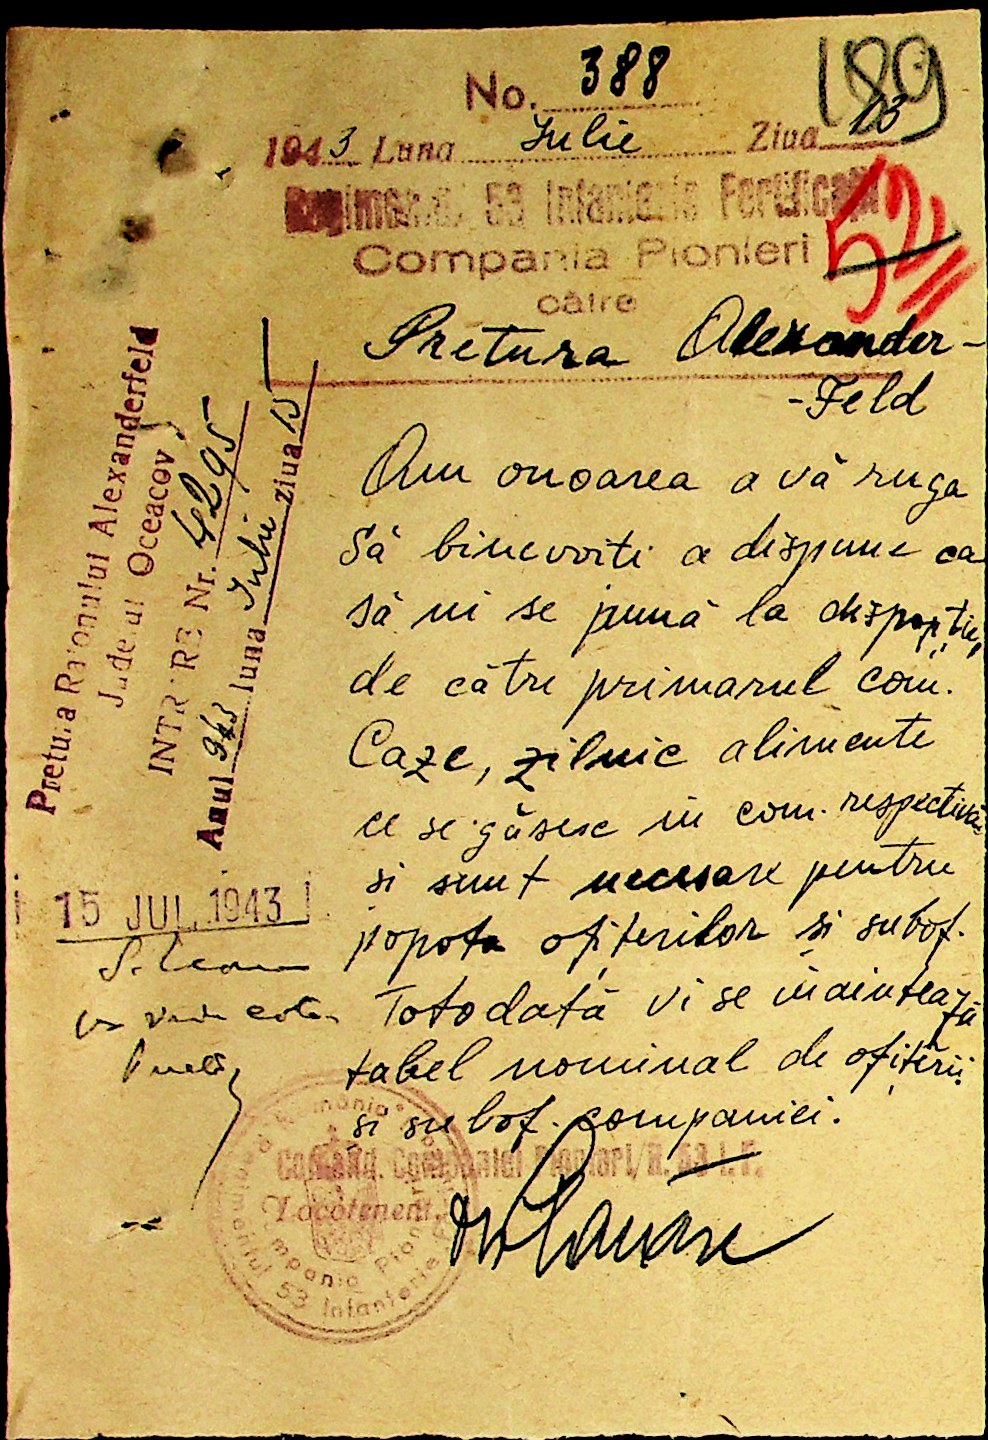 No. 388
189
1943 Luna Iulie Ziua 13
Regimentul 53 Infanterie Fortificații
Compania Pionieri
52
către
Pretura Alexander-
-Feld
Am onoarea a vă ruga
să binevoiti a dispune ca
să ni se pună la dispoziție,
de către primarul com.
Caze, zilnic alimente
ce se găsesc in com. respectivă
si sunt necesare pentru
popota ofițerilor și subof.
Totodată vi se inaintează
tabel nominal de ofițerii
și subof. companiei.
Comand. Companiei Pionieri/R. 53 I. F.
Locotenent,
Pretura Raionului Alexanderfeld
Judetul Oceacov
INTRARE Nr. 4295
Anul 943 luna Iulie ziua 15
15 JUL. 1943
România
Compania Pionieri
53 Infanterie